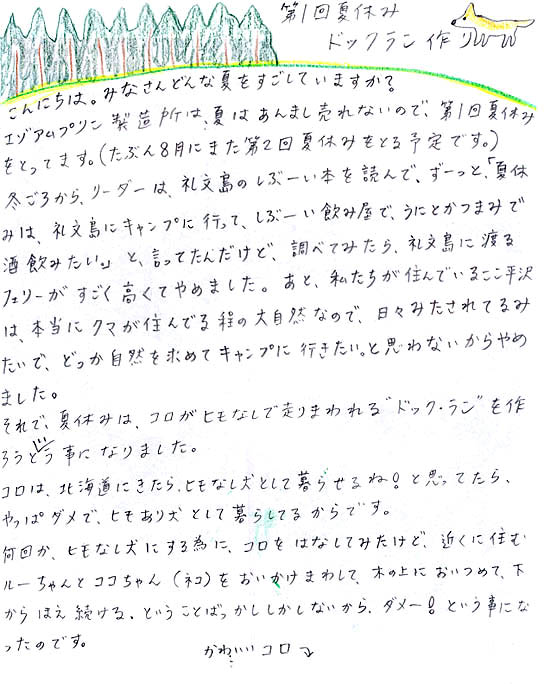 第1回夏休み
ドックラン作り
こんにちは。みなさんどんな夏をすごしていますか?
エゾアムプリン製造所は、夏はあんまし売れないので、第1回夏休み
をとってます。(たぶん8月にまた第2回夏休みをとる予定です。)
冬ごろから、リーダーは、礼文島のしぶーい本を読んで、ずーっと、「夏休
みは、礼文島にキャンプに行って、しぶーい飲み屋で、うにとかつまみで
酒飲みたい。」と、言ってたんだけど、調べてみたら、礼文島に渡る
フェリーがすごく高くてやめました。あと、私たちが住んでいるここ平沢
は、本当にクマが住んでる程の大自然なので、日々みたされてるみ
たいで、どっか自然を求めてキャンプに行きたい。と思わないからやめ
ました。
それで、夏休みは、コロがヒモなしで走りまわれる"ドック・ラン"を作
ろうという事になりました。
コロは、北海道にきたら、ヒモなし犬として暮らせるね!と思ってたら、
やっぱダメで、ヒモあり犬として暮らしてるからです。
何回か、ヒモなし犬にする為に、コロをはなしてみたけど、近くに住む
ルーちゃんとココちゃん(ネコ)をおいかけまわして、木の上においつめて、下
からほえ続ける。ということばっかししかしないから、ダメー!という事にな
ったのです。
かわいいコロ